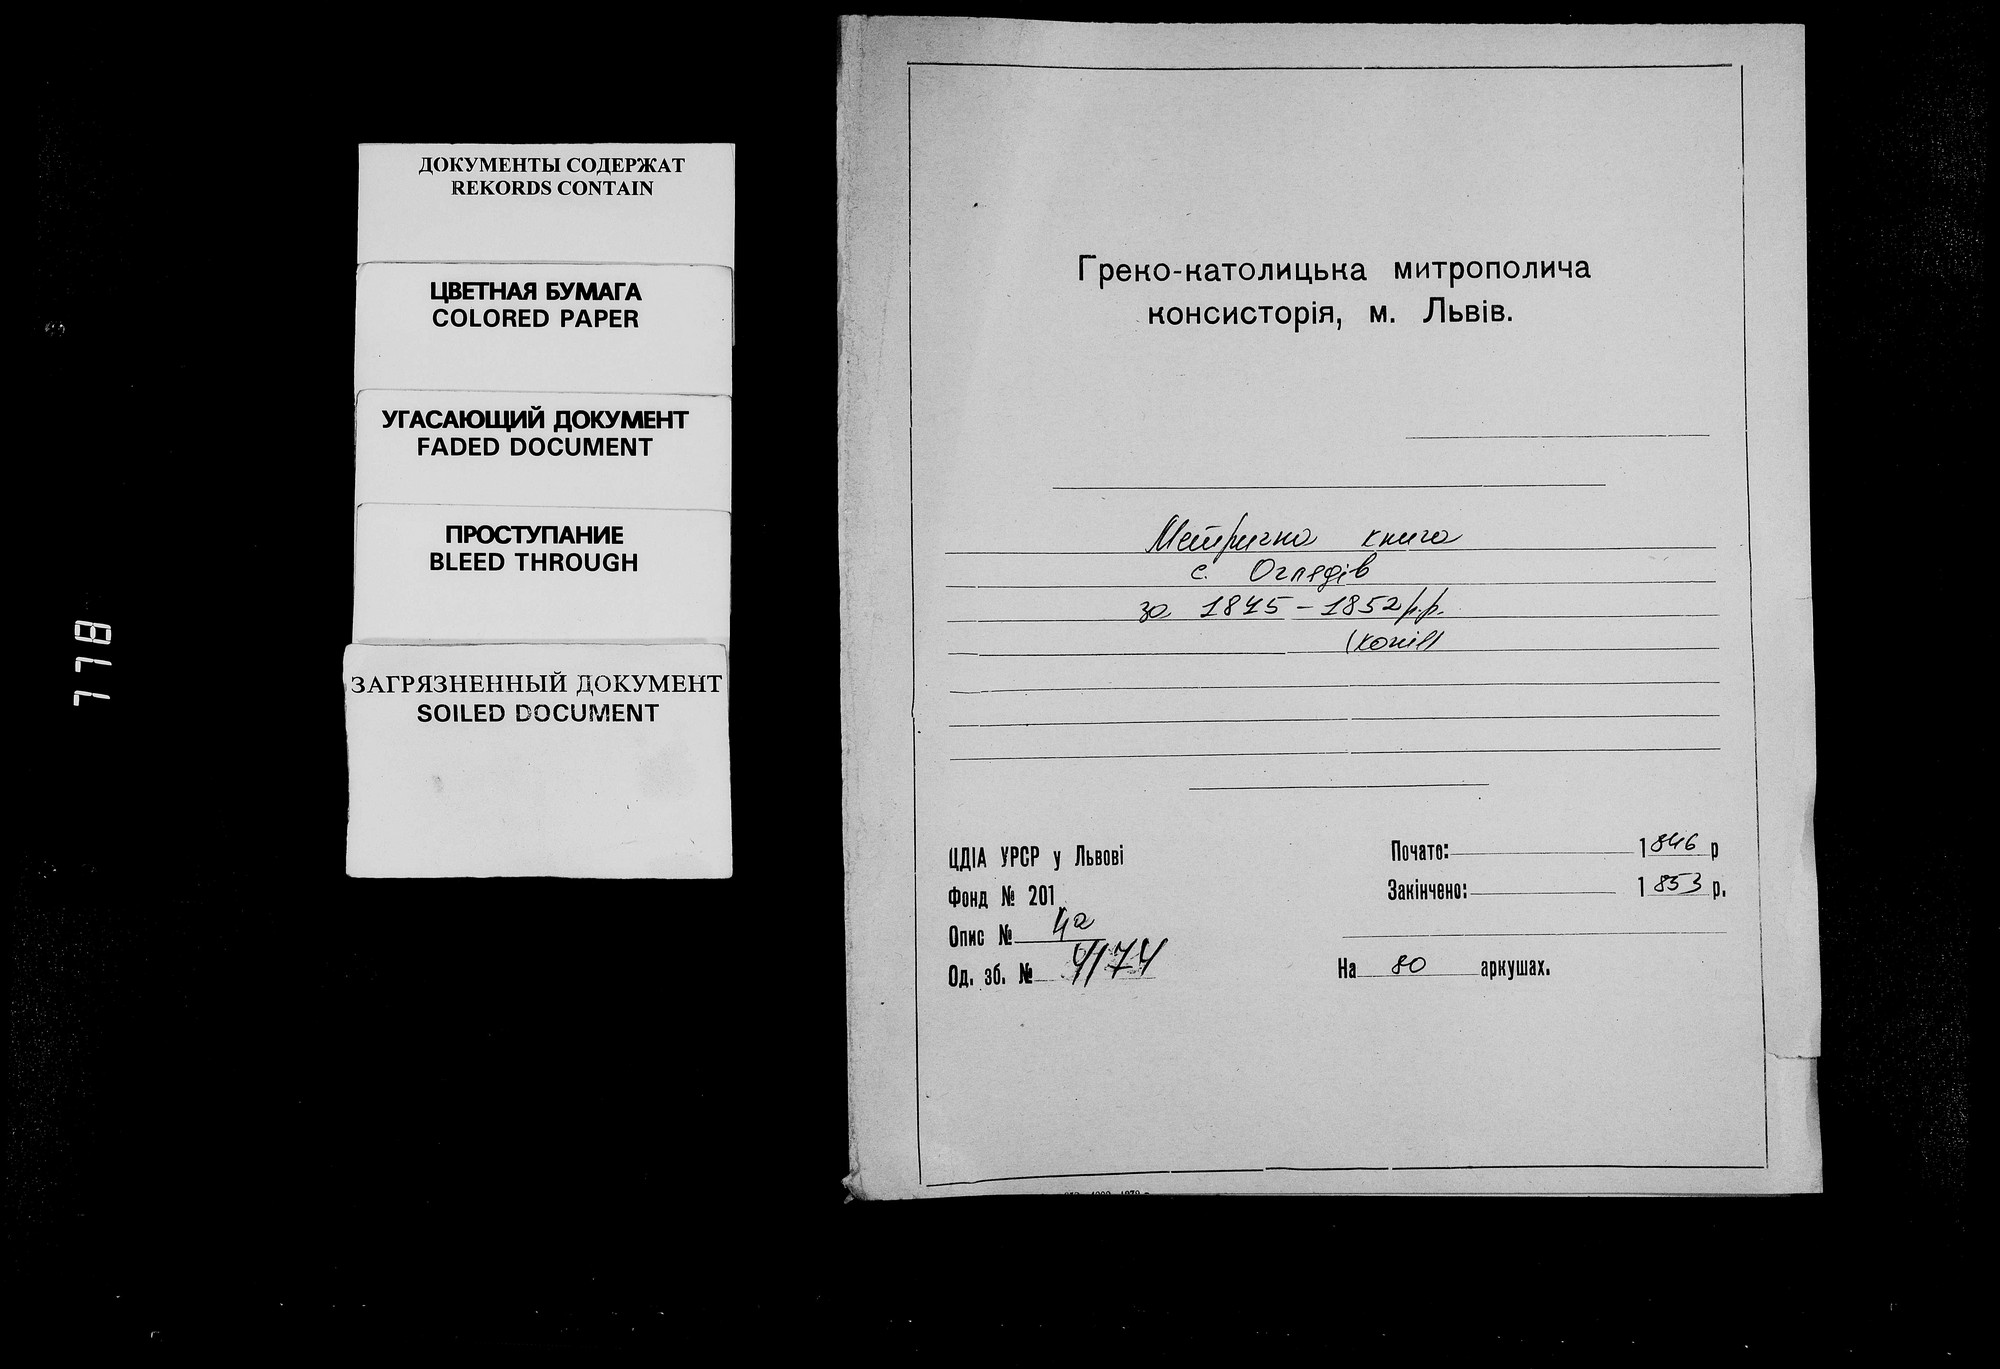 778
ДОКУМЕНТЫ СОДЕРЖАТ
REKORDS CONTAIN
ЦВЕТНАЯ БУМАГА
COLORED PAPER
УГАСАЮЩИЙ ДОКУМЕНТ
FADED DOCUMENT
ПРОСТУПАНИЕ
BLEED THROUGH
ЗАГРЯЗНЕННЫЙ ДОКУМЕНТ
SOILED DOCUMENT
Греко-католицька митрополича
консисторія, м. Львів.
Метрична книга
с. Оглядів
за 1845-1852 р.р.
(копія)
ЦДІА УРСР у Львові
Фонд № 201
Опис № 4а
Од. зб. № 4174
Почате: 1846 р
Закінчено: 1853 р.
На 80 аркушах.